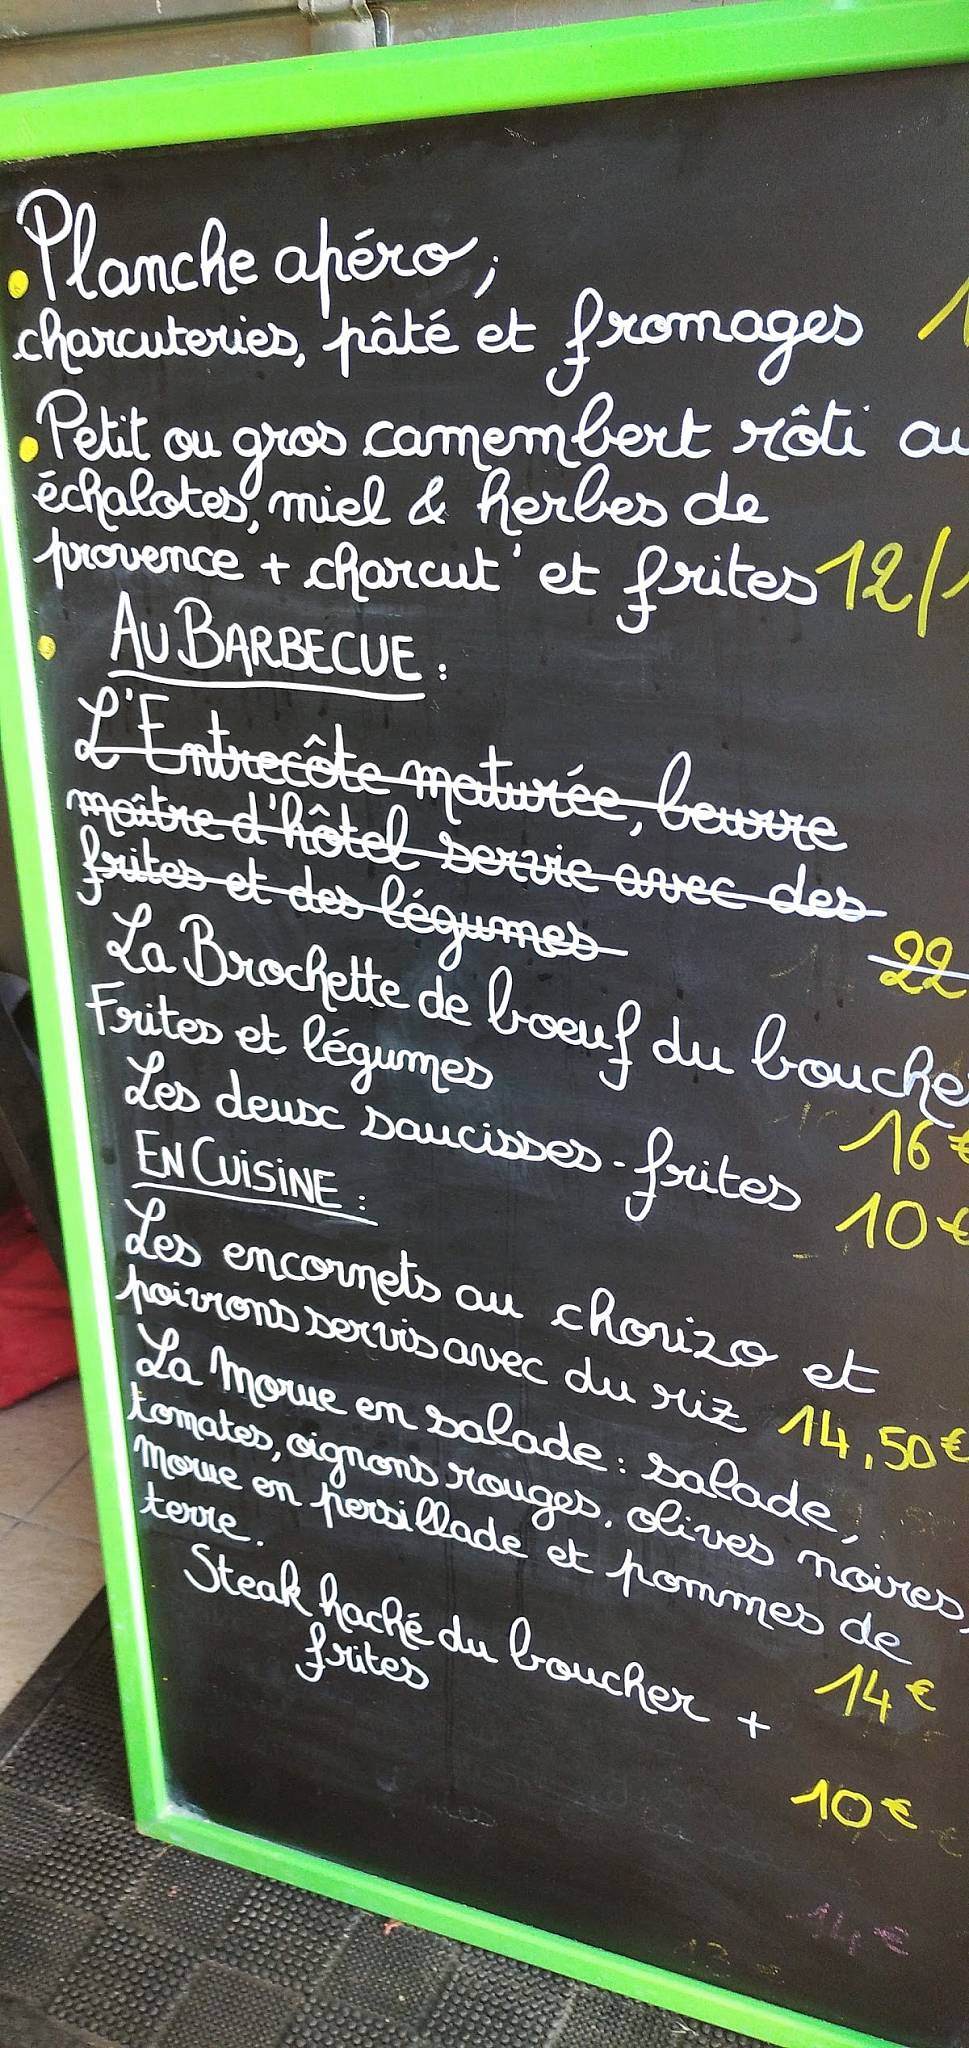 Planche apéro,
charcuteries, pâté et fromages 1
Petit ou gros camembert rôti au
échalotes, miel & herbes de
provence + charcut' et frites 12/1
AU BARBECUE :
L'Entrecôte maturée, beurre
maître d'hôtel servie avec des
frites et des légumes 22
La Brochette de boeuf du boucher
Frites et légumes 16 €
Les deux saucisses-frites 10 €
EN CUISINE :
Les encornets au chorizo et
poivrons servis avec du riz 14,50 €
La Morue en salade : salade,
tomates, oignons rouges, olives noires,
morue en persillade et pommes de
terre. 14 €
Steak haché du boucher +
frites 10 €
14 €